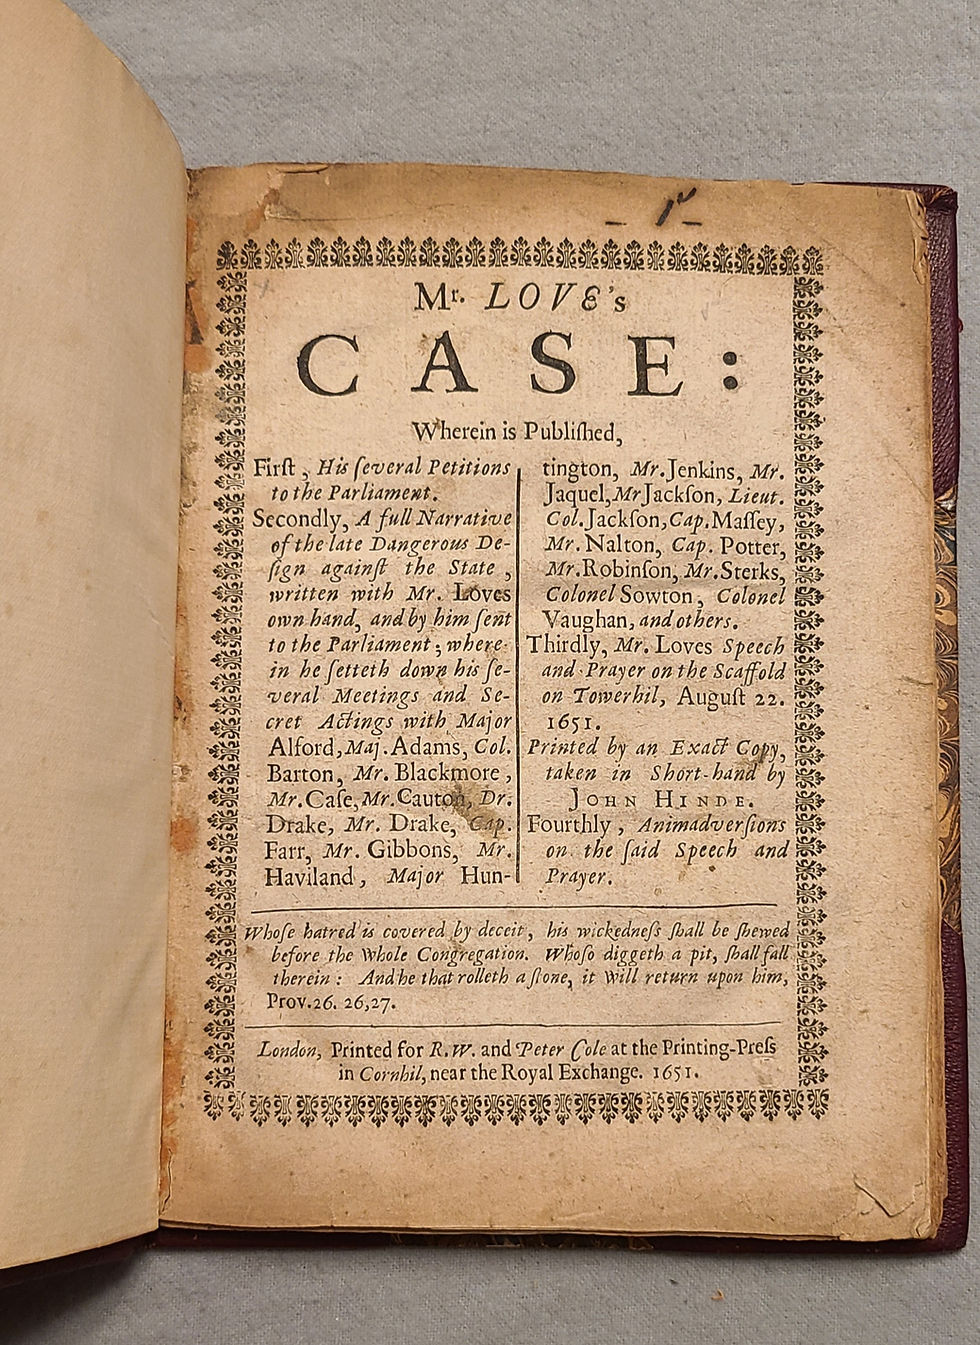 Mr. LOVE's
CASE:
Wherein is Publiſhed,
Firſt, His ſeveral Petitions
to the Parliament.
Secondly, A full Narrative
of the late Dangerous De-
ſign againſt the State,
written with Mr. Loves
own hand, and by him ſent
to the Parliament; where-
in he ſetteth down his ſe-
veral Meetings and Se-
cret Actings with Major
Alford, Maj. Adams, Col.
Barton, Mr. Blackmore,
Mr. Caſe, Mr. Cauton, Dr.
Drake, Mr. Drake, Cap.
Farr, Mr. Gibbons, Mr.
Haviland, Major Hun-
tington, Mr. Jenkins, Mr.
Jaquel, Mr Jackſon, Lieut.
Col. Jackſon, Cap. Maſſey,
Mr. Nalton, Cap. Potter,
Mr. Robinſon, Mr. Sterks,
Colonel Sowton, Colonel
Vaughan, and others.
Thirdly, Mr. Loves Speech
and Prayer on the Scaffold
on Towerhil, Auguſt 22.
1651.
Printed by an Exact Copy,
taken in Short-hand by
JOHN HINDE.
Fourthly, Animadverſions
on the ſaid Speech and
Prayer.
Whoſe hatred is covered by deceit, his wickedneſs ſhall be ſhewed
before the whole Congregation. Whoſo diggeth a pit, ſhall fall
therein: And he that rolleth a ſtone, it will return upon him,
Prov. 26. 26,27.
London, Printed for R.W. and Peter Cole at the Printing-Preſs
in Cornhil, near the Royal Exchange. 1651.